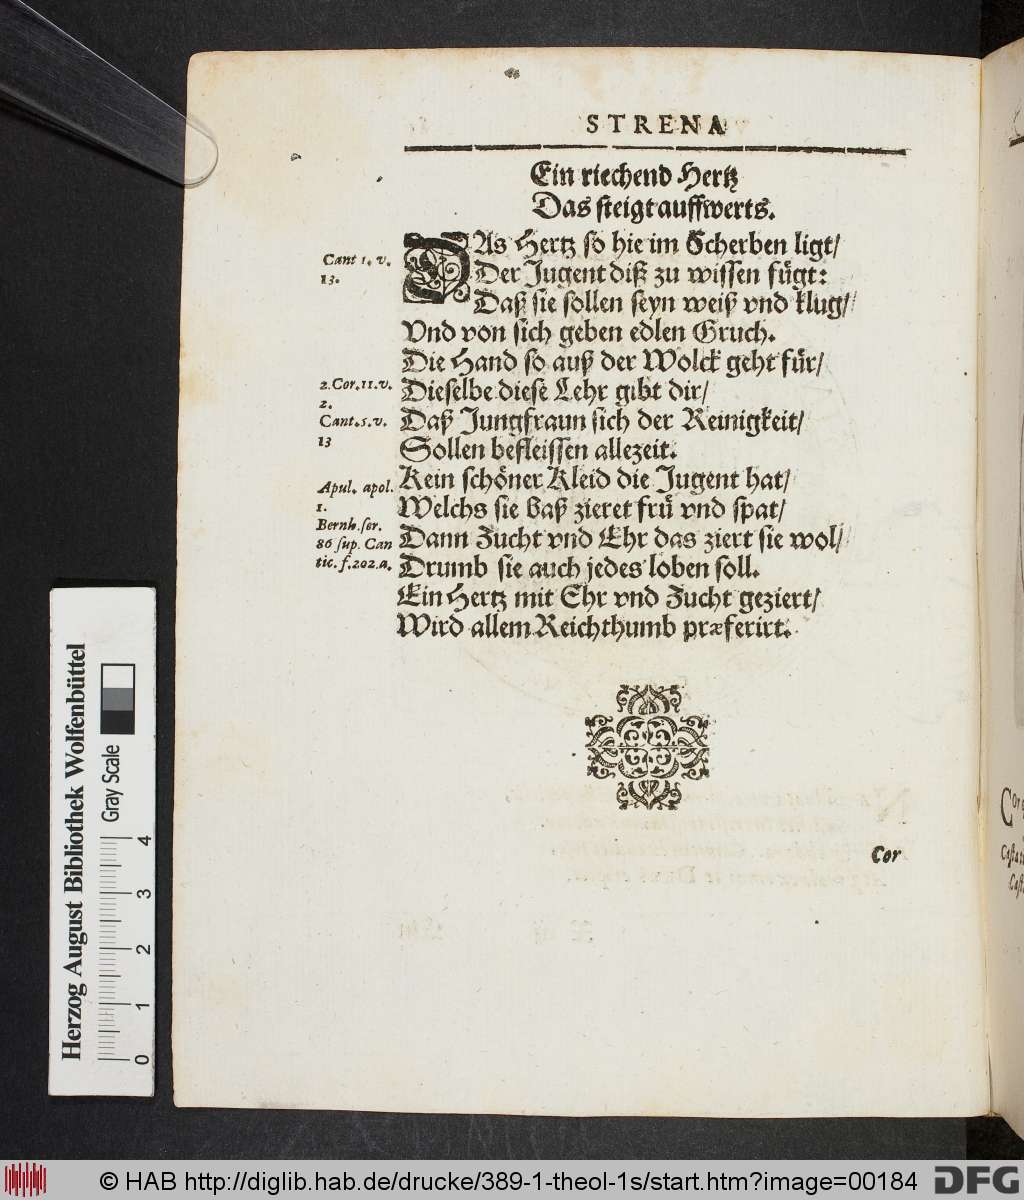 STRENA
Ein riechend Hertz
Das steigt auffwerts.
DAs Hertz so hie im Scherben ligt/
Der Jugent diß zu wissen fügt:
Daß sie sollen seyn weiß vnd klug/
Vnd von sich geben edlen Gruch.
Die Hand so auß der Wolck geht für/
Dieselbe diese Lehr gibt dir/
Daß Jungfraun sich der Reinigkeit/
Sollen befleissen allezeit.
Kein schöner Kleid die Jugent hat/
Welchs sie baß zieret frü vnd spat/
Dann Zucht vnd Ehr das ziert sie wol/
Drumb sie auch jedes loben soll.
Ein Hertz mit Ehr vnd Zucht geziert/
Wird allem Reichthumb præferirt.
Cant 1. v.
13.
2. Cor. 11. v.
2.
Cant. 5. v.
13
Apul. apol.
1.
Bernh. ser.
86 sup. Can
tic. f. 202. a.
Cor
Herzog August Bibliothek Wolfenbüttel
Gray Scale
0 1 2 3 4
© HAB http://diglib.hab.de/drucke/389-1-theol-1s/start.htm?image=00184
DFG